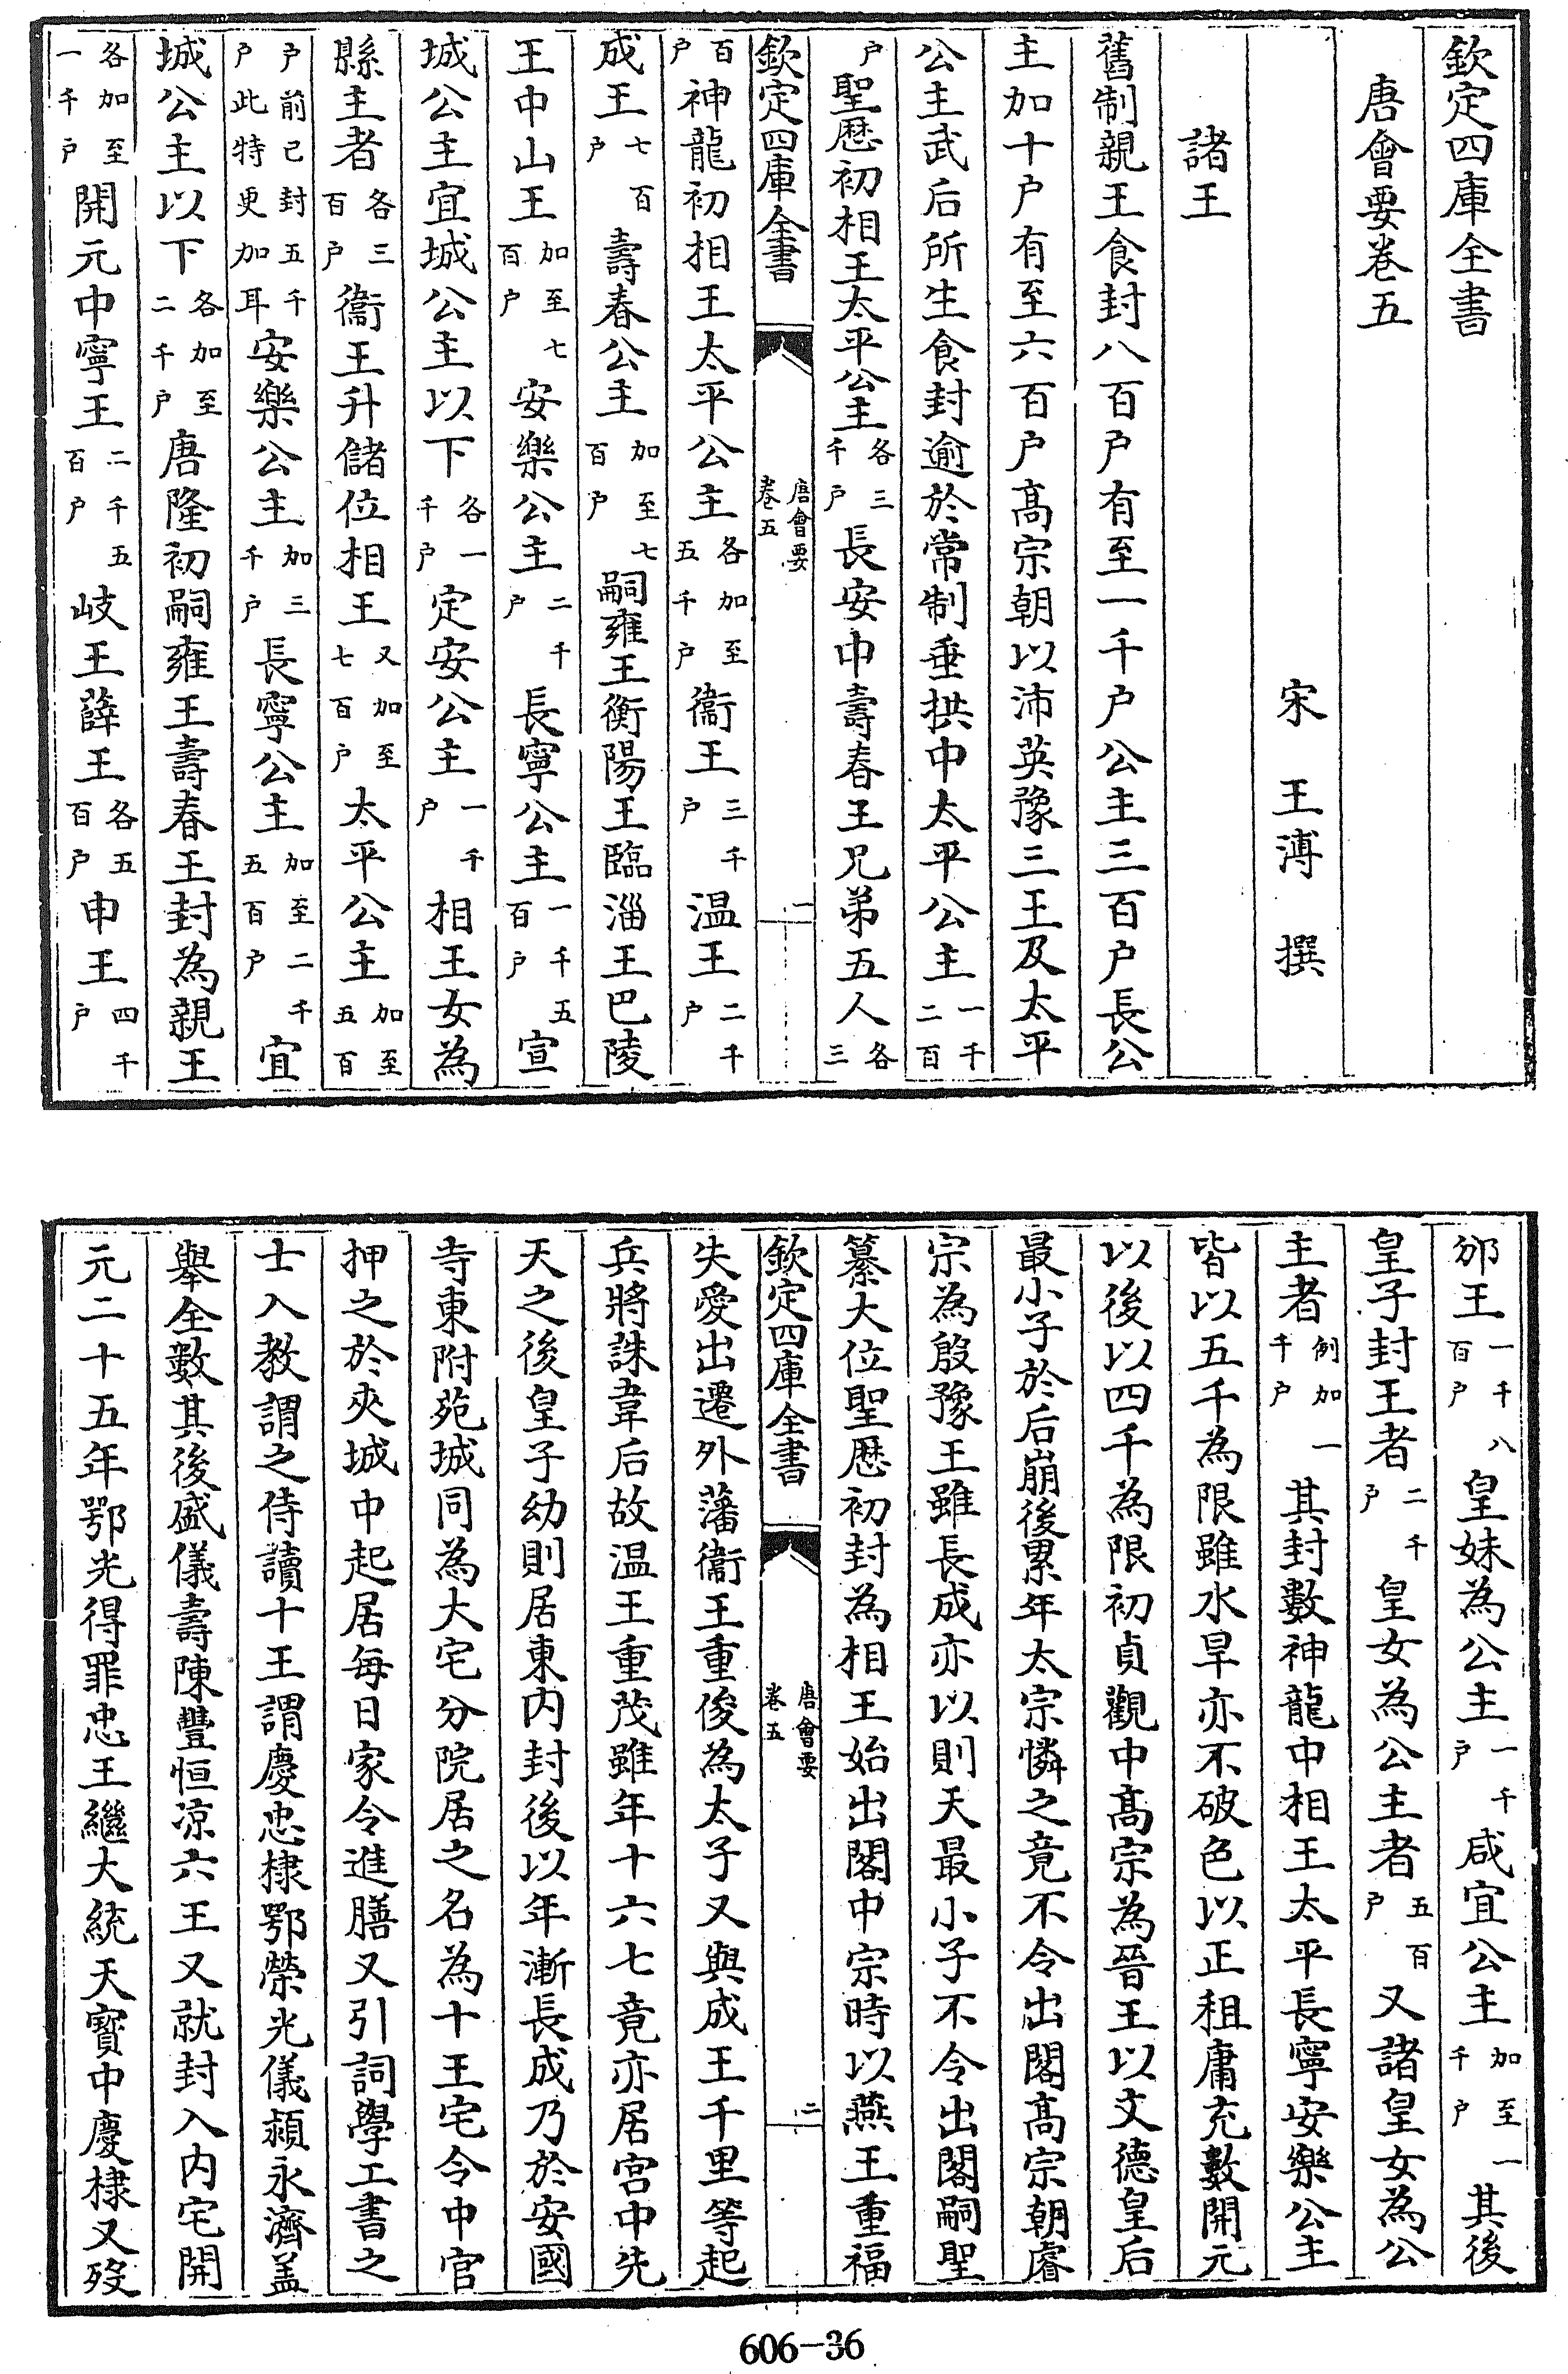 欽定四庫全書
唐會要卷五
宋 王溥 撰
諸王
舊制親王食封八百户有至一千户公主三百户長公
主加十户有至六百户髙宗朝以沛英豫三王及太平
公主武后所生食封逾於常制垂拱中太平公主一千二百
户聖歴初相王太平公主各三千户長安中壽春王兄弟五人各三
欽定四庫全書 唐會要卷五 一
百户神龍初相王太平公主各加至五千户衞王三千户温王二千户
成王七百户壽春公主加至七百户嗣雍王衡陽王臨淄王巴陵
王中山王加至七百户安樂公主二千户長寧公主一千五百户宣
城公主宜城公主以下各一千户定安公主一千户相王女為
縣主者各三百户衞王升儲位相王又加至七百户太平公主加至五百
户前已封五千户此特更加耳安樂公主加三千户長寧公主加至二千五百户宜
城公主以下各加至二千户唐隆初嗣雍王壽春王封為親王
各加至一千户開元中寧王二千五百户岐王薛王各五百户申王四千户
邠王一千八百户皇妹為公主一千户咸宜公主加至一千户其後
皇子封王者二千户皇女為公主者五百户又諸皇女為公
主者例加一千户其封數神龍中相王太平長寧安樂公主
皆以五千為限雖水旱亦不破色以正租庸充數開元
以後以四千為限初貞觀中髙宗為晉王以文德皇后
最小子於后崩後累年太宗憐之竟不令出閣髙宗朝睿
宗為殷豫王雖長成亦以則天最小子不令出閣嗣聖
纂大位聖歴初封為相王始出閣中宗時以燕王重福
欽定四庫全書 唐會要卷五 二
失愛出遷外藩衞王重俊為太子又與成王千里等起
兵將誅韋后故温王重茂雖年十六七竟亦居宫中先
天之後皇子幼則居東内封後以年漸長成乃於安國
寺東附苑城同為大宅分院居之名為十王宅令中官
押之於夾城中起居每日家令進膳又引詞學工書之
士入教謂之侍讀十王謂慶忠棣鄂榮光儀潁永濟盖
舉全數其後盛儀壽陳豐恒凉六王又就封入内宅開
元二十五年鄂光得罪忠王繼大統天寳中慶棣又歿
606-36